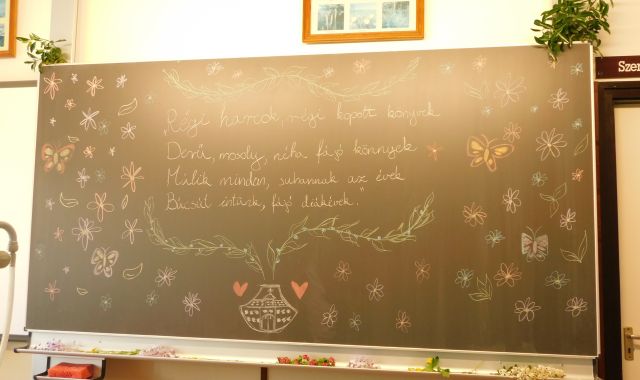 „Régi harcok, régi kopott könyvek
Derű, mosoly, néha fájó könnyek
Múlik minden, suhannak az évek
Búcsút intünk, fájó diákévek."
Szer